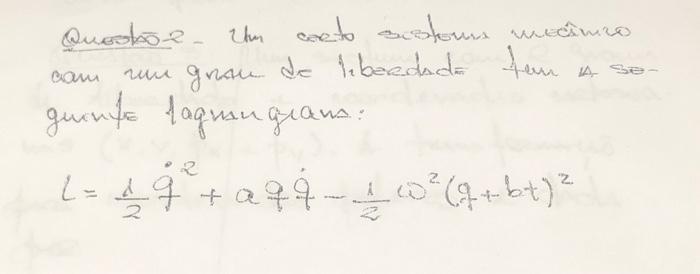 Questão 2 - Um certo sistema mecânico
com um grau de liberdade tem a se-
guinte lagrangiana:
L = 1/2 q̇² + a q q̇ - 1/2 ω² (q + bt)²